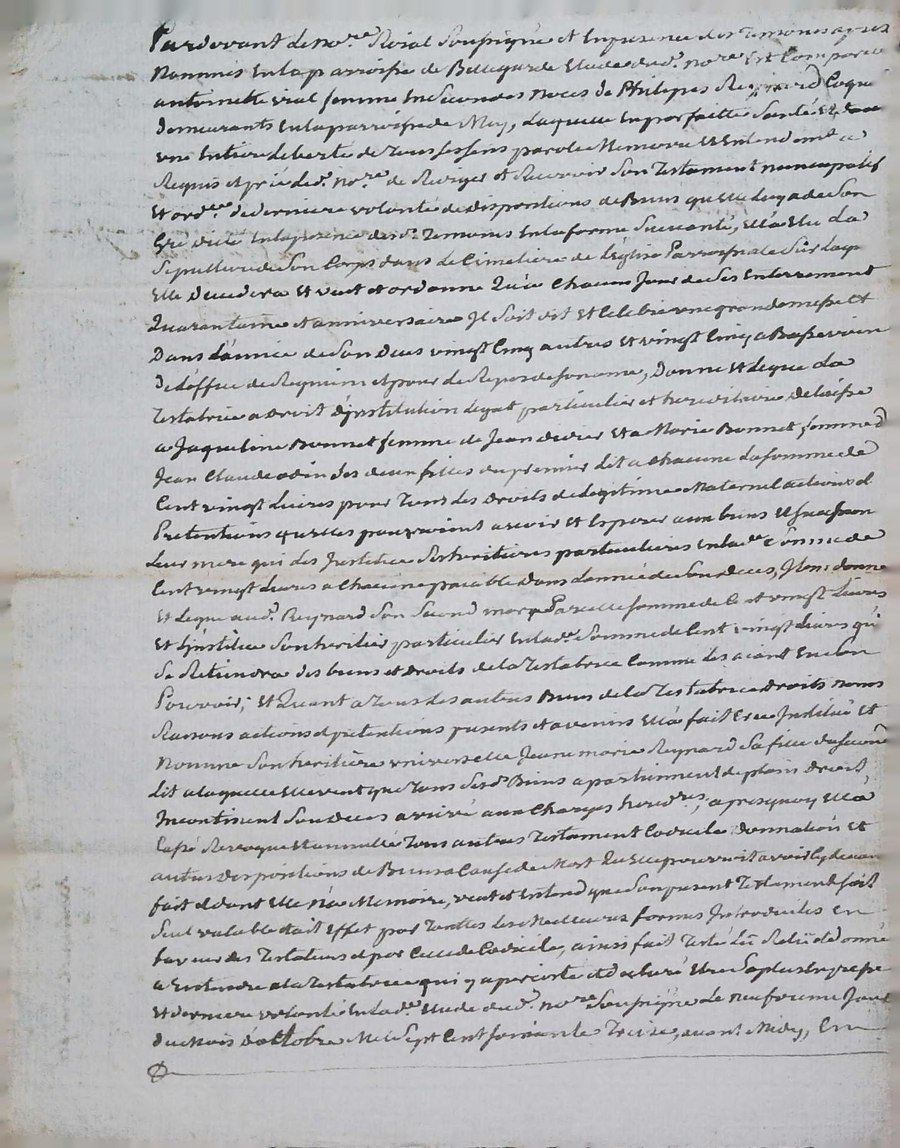 Pardevant le no.re Roial Soussigné et En presence des Temoins apres
Nommés En la parroisse de Bellegarde Etude dud. no.re Est Comparue
antoinette vial femme En Secondes noces de Philipes Reynard
demeurants En la parroisse de laquelle En parfaitte Santé et dans
une Entiere liberté de Tous ses sens parole Memoire et Entendem.t a
Requis et prié led. no.re de Rediger et Recevoir Son Testament nuncupatif
et ord.re de derniere volonté de dispositions de Biens qu'elle luy a de Son
Gré dicté En la presence desd. Temoins En la forme Suivante, Ella Elu La
Sepulture de Son Corps dans le Cimetiere de l'Eglise Parroissiale Sur laq.
Elle decedera et veut et ordonne Qu'a Chacun Jour de Ses Enterrement
Quarantaine et anniversaire Il Soit dit et Celebré une grande messe et
Dans l'année de Son Deces vingt Cinq autres et vingt Cinq a Basse voix
de l'office de Requiem et pour le Repos de son ame, Donne et legue La
Testatrice a Droit d'institution legat particulier et hereditaire delaisse
a Jaqueline Bonnet femme de Jean et a Marie Bonnet femme d
Jean Claude ses deux filles du premier lit a Chacune La somme de
Cent vingt Livres pour Tous les Droits de legitime Maternel actions et
Pretentions qu'elles pourroient avoir et Esperer aux biens et succession
Leur mere qui les Institue Ses heritieres particulieres En lad. Somme de
Cent vingt Livres a Chacune paiable dans l'année de Son deces, Item donne
et legue aud. Reynard Son Second mary Pareille somme de Cent vingt Livres
et l'institue Son heritier particulier En lad. Somme de Cent vingt Livres qu'il
Se Retiendra des biens et droits de la Testatrice Comme les aiant En Son
Pouvoir; et Quant a Tous les autres Biens de la Testatrice droits noms
Raisons actions et pretentions presents et avenirs Ella fait Cree Institué et
Nommé Son heritiere universelle Jeane marie Reynard Sa fille du Second
lit a laquelle Elle veut que Tous Sesd. Biens apartiennent de plain Droit
Incontinent Son deces arrivé aux Charges hered.res, apres quoy Ella
Cassé Revoqué et annullé Tous autres Testament Codicile donnations et
autres dispositions de Biens a Cause de Mort Qu'elle pourroit avoir Cy devan
fait et dont Elle n'a Memoire, veut et Entend que Son present Testament soit
Seul valable et ait Effet par Touttes les Meilleures formes Introduites En
faveur des Testateurs et par Ceux de Codicile, ainsi fait Testé Lû Relû et donné
a Entendre a la Testatrice qui y a persisté et declaré Etre Sa plus Expresse
et derniere volonté En lad. Etude dud. no.re Soussigné Le neufvieme Jour
du Mois d'octobre Mil Sept Cent soixante Treize, avant Midy, En